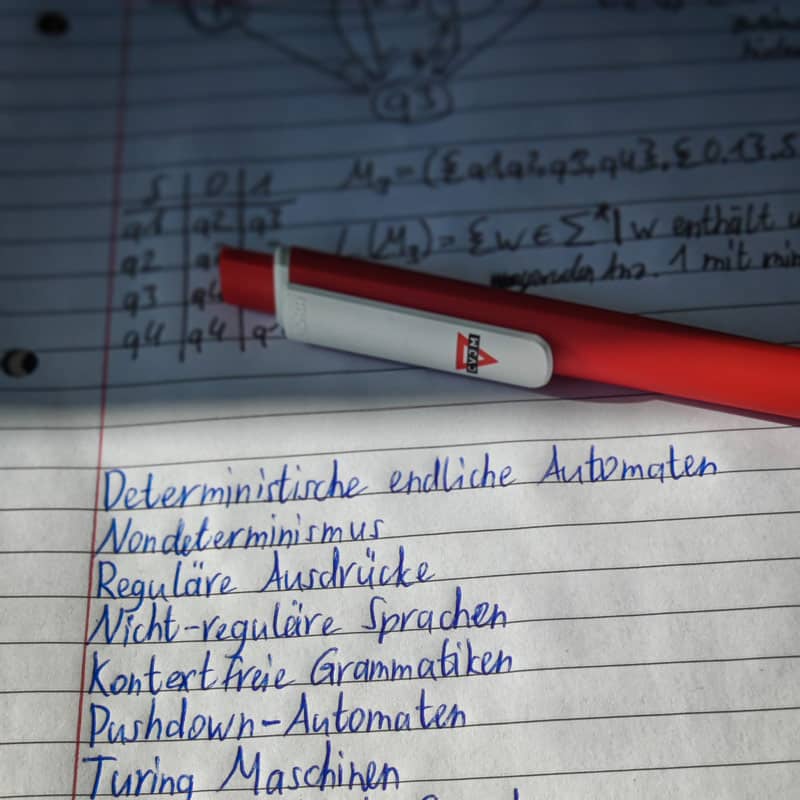 q3
δ 0 1
q1 q2 q3
q2
q3 q4
q4 q4
M₃=({q1,q2,q3,q4},{0,1},δ
L(M₃)={w∈Σ*|w enthält
Anz. 1 mit min
CVJM
Deterministische endliche Automaten
Nondeterminismus
Reguläre Ausdrücke
Nicht-reguläre Sprachen
Kontextfreie Grammatiken
Pushdown-Automaten
Turing Maschinen